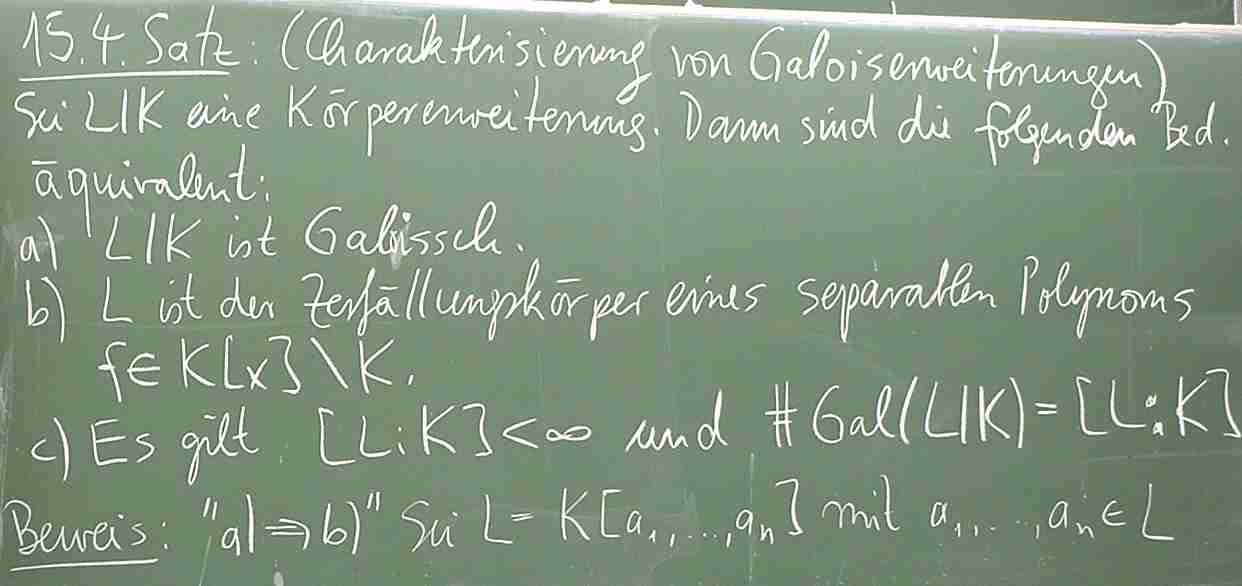 15.4. Satz: (Charakterisierung von Galoiserweiterungen)
Sei L|K eine Körpererweiterung. Dann sind die folgenden Bed.
äquivalent:
a) L|K ist Galoissch.
b) L ist der Zerfällungskörper eines separablen Polynoms
f∈K[x]\K.
c) Es gilt [L:K]<∞ und #Gal(L|K)=[L:K]
Beweis: "a)⇒b)" Sei L=K[a₁,...,aₙ] mit a₁,...,aₙ∈L